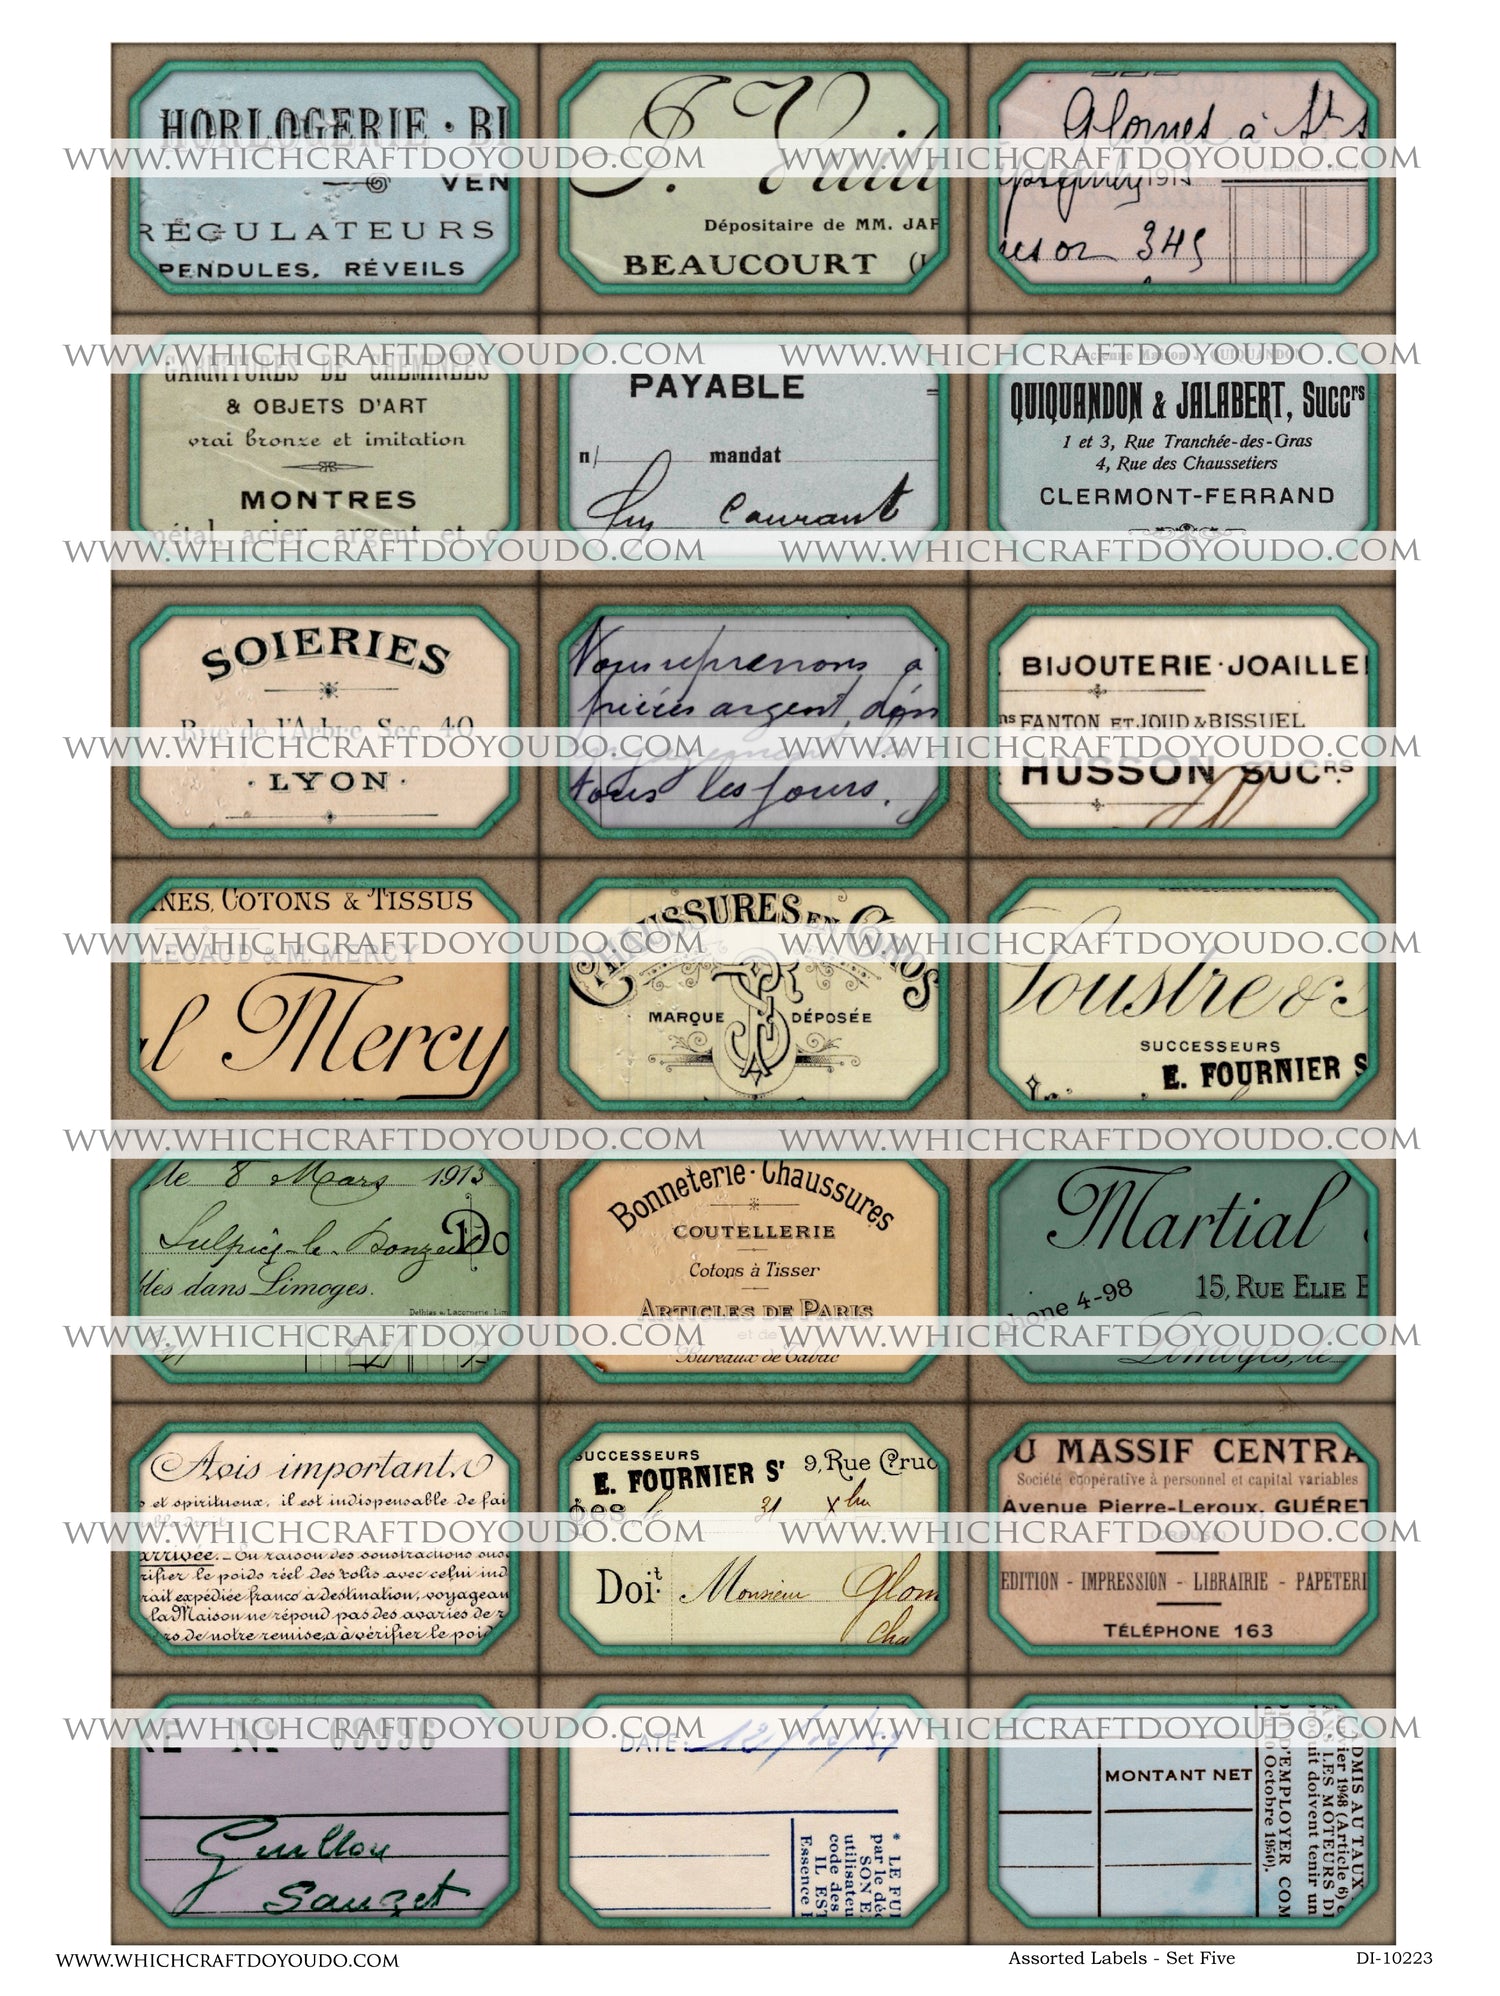 HORLOGERIE · BI
VEN
RÉGULATEURS
PENDULES, RÉVEILS
J. Vuil
Dépositaire de MM. JAP
BEAUCOURT
Glomes à St
191
345
WWW.WHICHCRAFTDOYOUDO.COM WWW.WHICHCRAFTDOYOUDO.COM
GARNITURES DE CHEMINÉES
& OBJETS D'ART
vrai bronze et imitation
MONTRES
métal, acier, argent et o
PAYABLE =
n/ mandat
Courant
Ancienne Maison J. QUIQUANDON
QUIQUANDON & JALABERT, Succrs
1 et 3, Rue Tranchée-des-Gras
4, Rue des Chaussetiers
CLERMONT-FERRAND
WWW.WHICHCRAFTDOYOUDO.COM WWW.WHICHCRAFTDOYOUDO.COM
WWW.WHICHCRAFTDOYOUDO.COM WWW.WHICHCRAFTDOYOUDO.COM
SOIERIES
Rue de l'Arbre Sec 40
· LYON ·
Nous reprenons a
argent, don
tous les jours.
BIJOUTERIE · JOAILLE
ns FANTON ET JOUD & BISSUEL
HUSSON SUCRS.
WWW.WHICHCRAFTDOYOUDO.COM WWW.WHICHCRAFTDOYOUDO.COM
NES, COTONS & TISSUS
LEGAUD & M. MERCY
l Mercy
CHAUSSURES EN GROS
MARQUE DÉPOSÉE
Soustre & S
SUCCESSEURS
E. FOURNIER S
WWW.WHICHCRAFTDOYOUDO.COM WWW.WHICHCRAFTDOYOUDO.COM
WWW.WHICHCRAFTDOYOUDO.COM WWW.WHICHCRAFTDOYOUDO.COM
le 8 Mars 1913
Do
bles dans Limoges.
Bonneterie · Chaussures
COUTELLERIE
Cotons à Tisser
ARTICLES DE PARIS
et de
Bureaux de Tabac
Martial
phone 4-98 15, RUE ELIE B
Limoges, le
WWW.WHICHCRAFTDOYOUDO.COM WWW.WHICHCRAFTDOYOUDO.COM
Avis important.
s et spiritueux, il est indispensable de fai
arrivée. - En raison des soustractions
rifier le poids réel des colis avec celui ind
rait expédiée franco à destination, voyagean
la Maison ne répond pas des avaries de r
rs de notre remise, a à vérifier le poid
SUCCESSEURS
E. FOURNIER Sr 9, Rue Cruc
31 Xbre
Doit Monsieur Glom
Cha
U MASSIF CENTRA
Société coopérative à personnel et capital variables
Avenue Pierre-Leroux, GUÉRET
(CREUSE)
EDITION - IMPRESSION - LIBRAIRIE - PAPETERI
TÉLÉPHONE 163
WWW.WHICHCRAFTDOYOUDO.COM WWW.WHICHCRAFTDOYOUDO.COM
RE No 09996
Guillou
Sauzet
DATE:
* LE FUI
par le déc
SON E
utilisateu
code des
IL EST
Essence F
MONTANT NET
ADMIS AU TAUX
vier 1948 (Article 6) d
ANS LES MOTEURS DI
roduit doivent tenir un
DIT D'EMPLOYER COM
du 10 Octobre 1950).
WWW.WHICHCRAFTDOYOUDO.COM WWW.WHICHCRAFTDOYOUDO.COM
WWW.WHICHCRAFTDOYOUDO.COM Assorted Labels - Set Five DI-10223